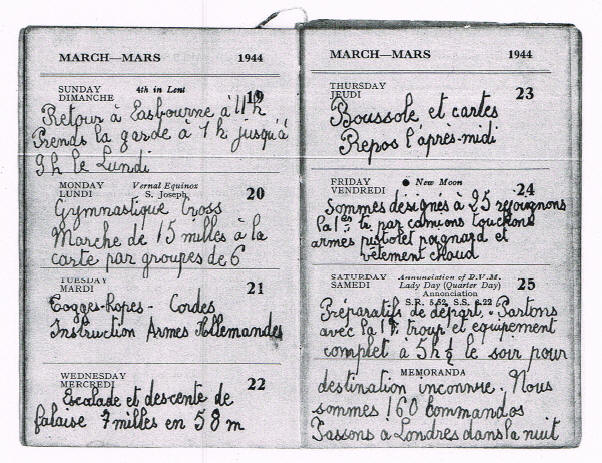 MARCH—MARS 1944
SUNDAY 4th in Lent
DIMANCHE 19
Retour à Easbourne à 11 h
Prends la garde à 7 h jusqu'à
9h le Lundi
MONDAY Vernal Equinox
LUNDI S. Joseph 20
Gymnastique Cross
Marche de 15 milles à la
carte par groupes de 6
TUESDAY
MARDI 21
Togges-Ropes - Cordes
Instruction Armes Allemandes
WEDNESDAY
MERCREDI 22
Escalade et descente de
falaise 7 milles en 58 m
MARCH—MARS 1944
THURSDAY
JEUDI 23
Boussole et cartes
Repos l'après-midi
FRIDAY ● New Moon
VENDREDI 24
Sommes désignés à 25 rejoignons
la 1ère tr par camions touchons
armes pistolet poignard et
vêtement chaud
SATURDAY Annunciation of B.V.M.
SAMEDI Lady Day (Quarter Day) 25
Annonciation
S.R. 5.52, S.S. 6.22
Préparatifs de départ. Partons
avec la 1ère troup et équipement
complet à 5h ½ le soir pour
MEMORANDA
destination inconnue. Nous
sommes 160 commandos
Passons à Londres dans la nuit